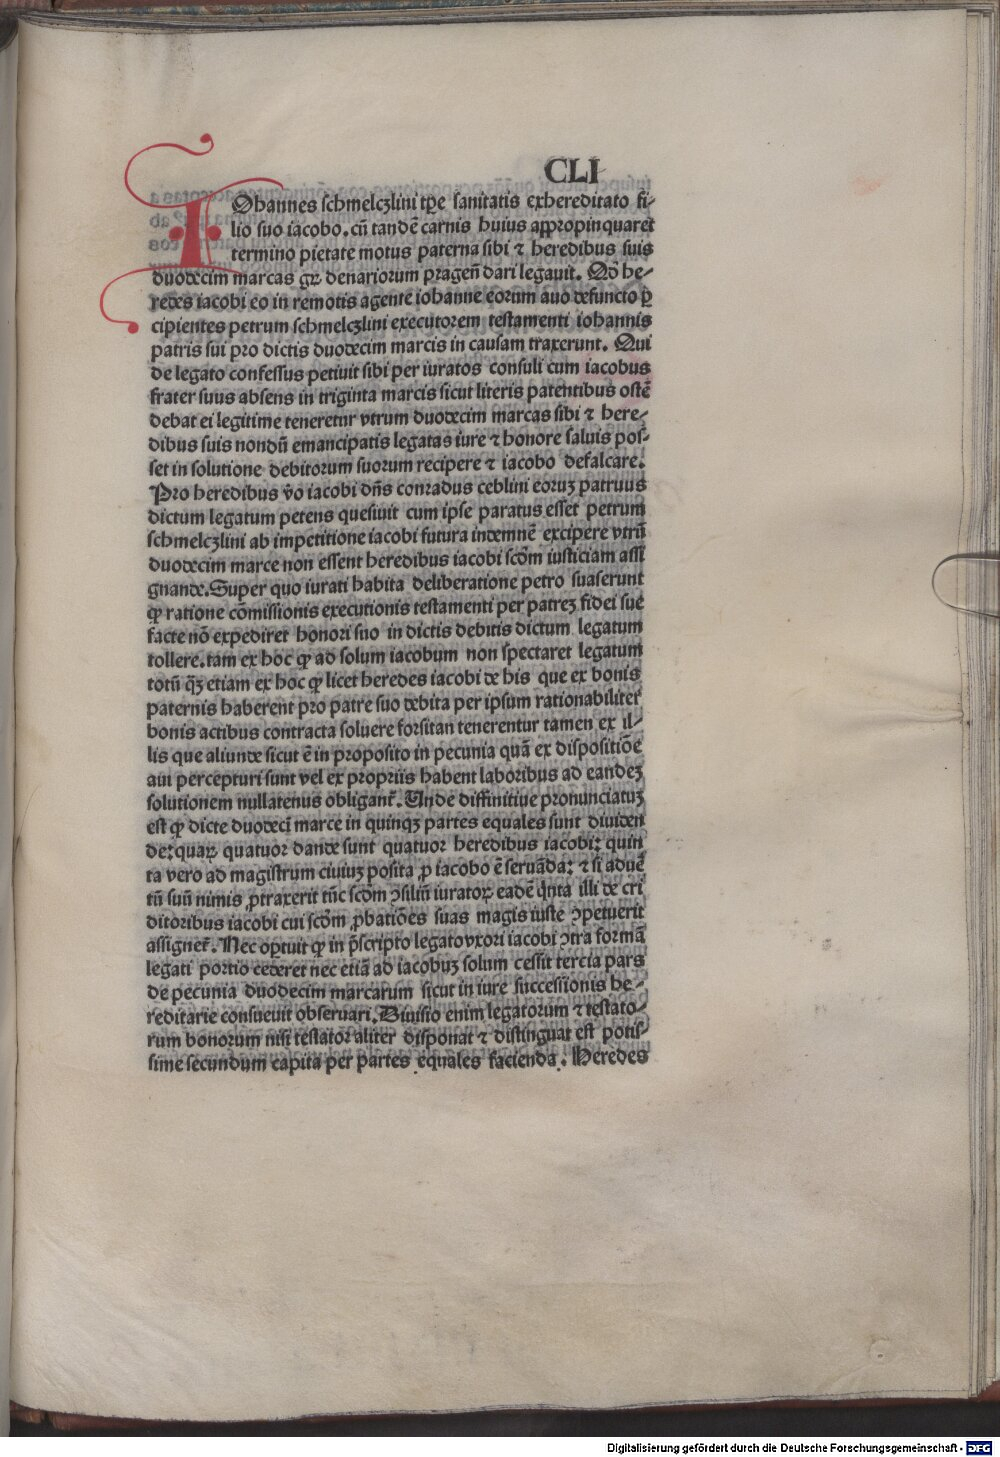 CLI
IOhannes schmelczlini tꝑe sanitatis exhereditato fi-
lio suo iacobo. cū tandē carnis huius appropinquaret
termino pietate motus paterna sibi ⁊ heredibus suis
duodecim marcas gꝝ denariorum pragen̄ dari legauit. Qd̄ he-
redes iacobi eo in remotis agente iohanne eorum auo defuncto p̄
cipientes petrum schmelczlini executorem testamenti iohannis
patris sui pro dictis duodecim marcis in causam traxerunt. Qui
de legato confessus petiuit sibi per iuratos consuli cum iacobus
frater suus absens in triginta marcis sicut literis patentibus ostē
debat ei legitime teneretur vtrum duodecim marcas sibi ⁊ here-
dibus suis nondū emancipatis legatas iure ⁊ honore saluis pos-
set in solutione debitorum suorum recipere ⁊ iacobo defalcare.
Pro heredibus v̄o iacobi dn̄s conradus ceblini eoruꝫ patruus
dictum legatum petens quesiuit cum ipse paratus esset petrum
schmelczlini ab impetitione iacobi futura indemnē excipere vtrū
duodecim marce non essent heredibus iacobi scd̄m iusticiam assi
gnande. Super quo iurati habita deliberatione petro suaserunt
ꝙ ratione cōmissionis executionis testamenti per patreꝫ fidei sue
facte nō expediret honori suo in dictis debitis dictum legatum
tollere. tam ex hoc ꝙ ad solum iacobum non spectaret legatum
totū qꝫ etiam ex hoc ꝙ licet heredes iacobi de his que ex bonis
paternis haberent pro patre suo debita per ipsum rationabiliter
bonis actibus contracta soluere forsitan tenerentur tamen ex il-
lis que aliunde sicut ē in proposito in pecunia quā ex dispositiōe
aui percepturi sunt vel ex propriis habent laboribus ad eandeꝫ
solutionem nullatenus obligant̄. Unde diffinitiue pronunciatuꝫ
est ꝙ dicte duodeci marce in quinqꝫ partes equales sunt diuiden
de: quaꝝ quatuor dande sunt quatuor heredibus iacobi: quin
ta vero ad magistrum ciuiuꝫ posita ꝓ iacobo ē seruāda: ⁊ si aduē
tū suū nimis ꝓtraxerit tūc scd̄m ↄsiliū iuratoꝝ eadē qͥnta illi de cri
ditoribus iacobi cui scd̄m ꝓbatiōes suas magis iuste ↄpetuerit
assignet̄. Nec oꝑtuit ꝙ in p̄scripto legato vxori iacobi ↄtra formā
legati portio cederet nec etiā ad iacobuꝫ solum cessit tercia pars
de pecunia duodecim marcarum sicut in iure successionis he-
reditarie consueuit obseruari. Diuisio enim legatorum ⁊ testato-
rum bonorum nisi testator aliter disponat ⁊ distinguat est potis-
sime secundum capita per partes equales facienda. Heredes
Digitalisierung gefördert durch die Deutsche Forschungsgemeinschaft - DFG